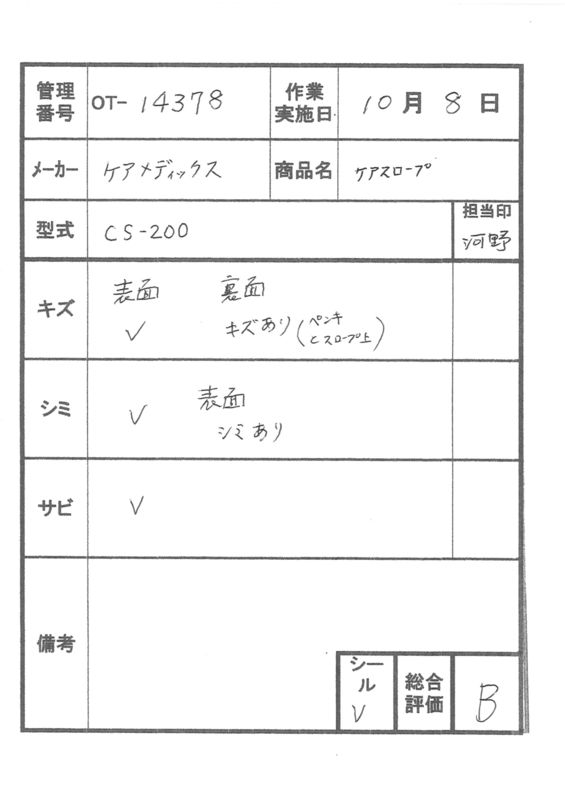 管理番号 OT- 14378 作業実施日 10月8日
メーカー ケアメディックス 商品名 ケアスロープ
型式 CS-200 担当印 河野
キズ 表面 裏面
✓ キズあり (ペンキとスロープ上)
シミ ✓ 表面
シミあり
サビ ✓
備考
シール ✓ 総合評価 B